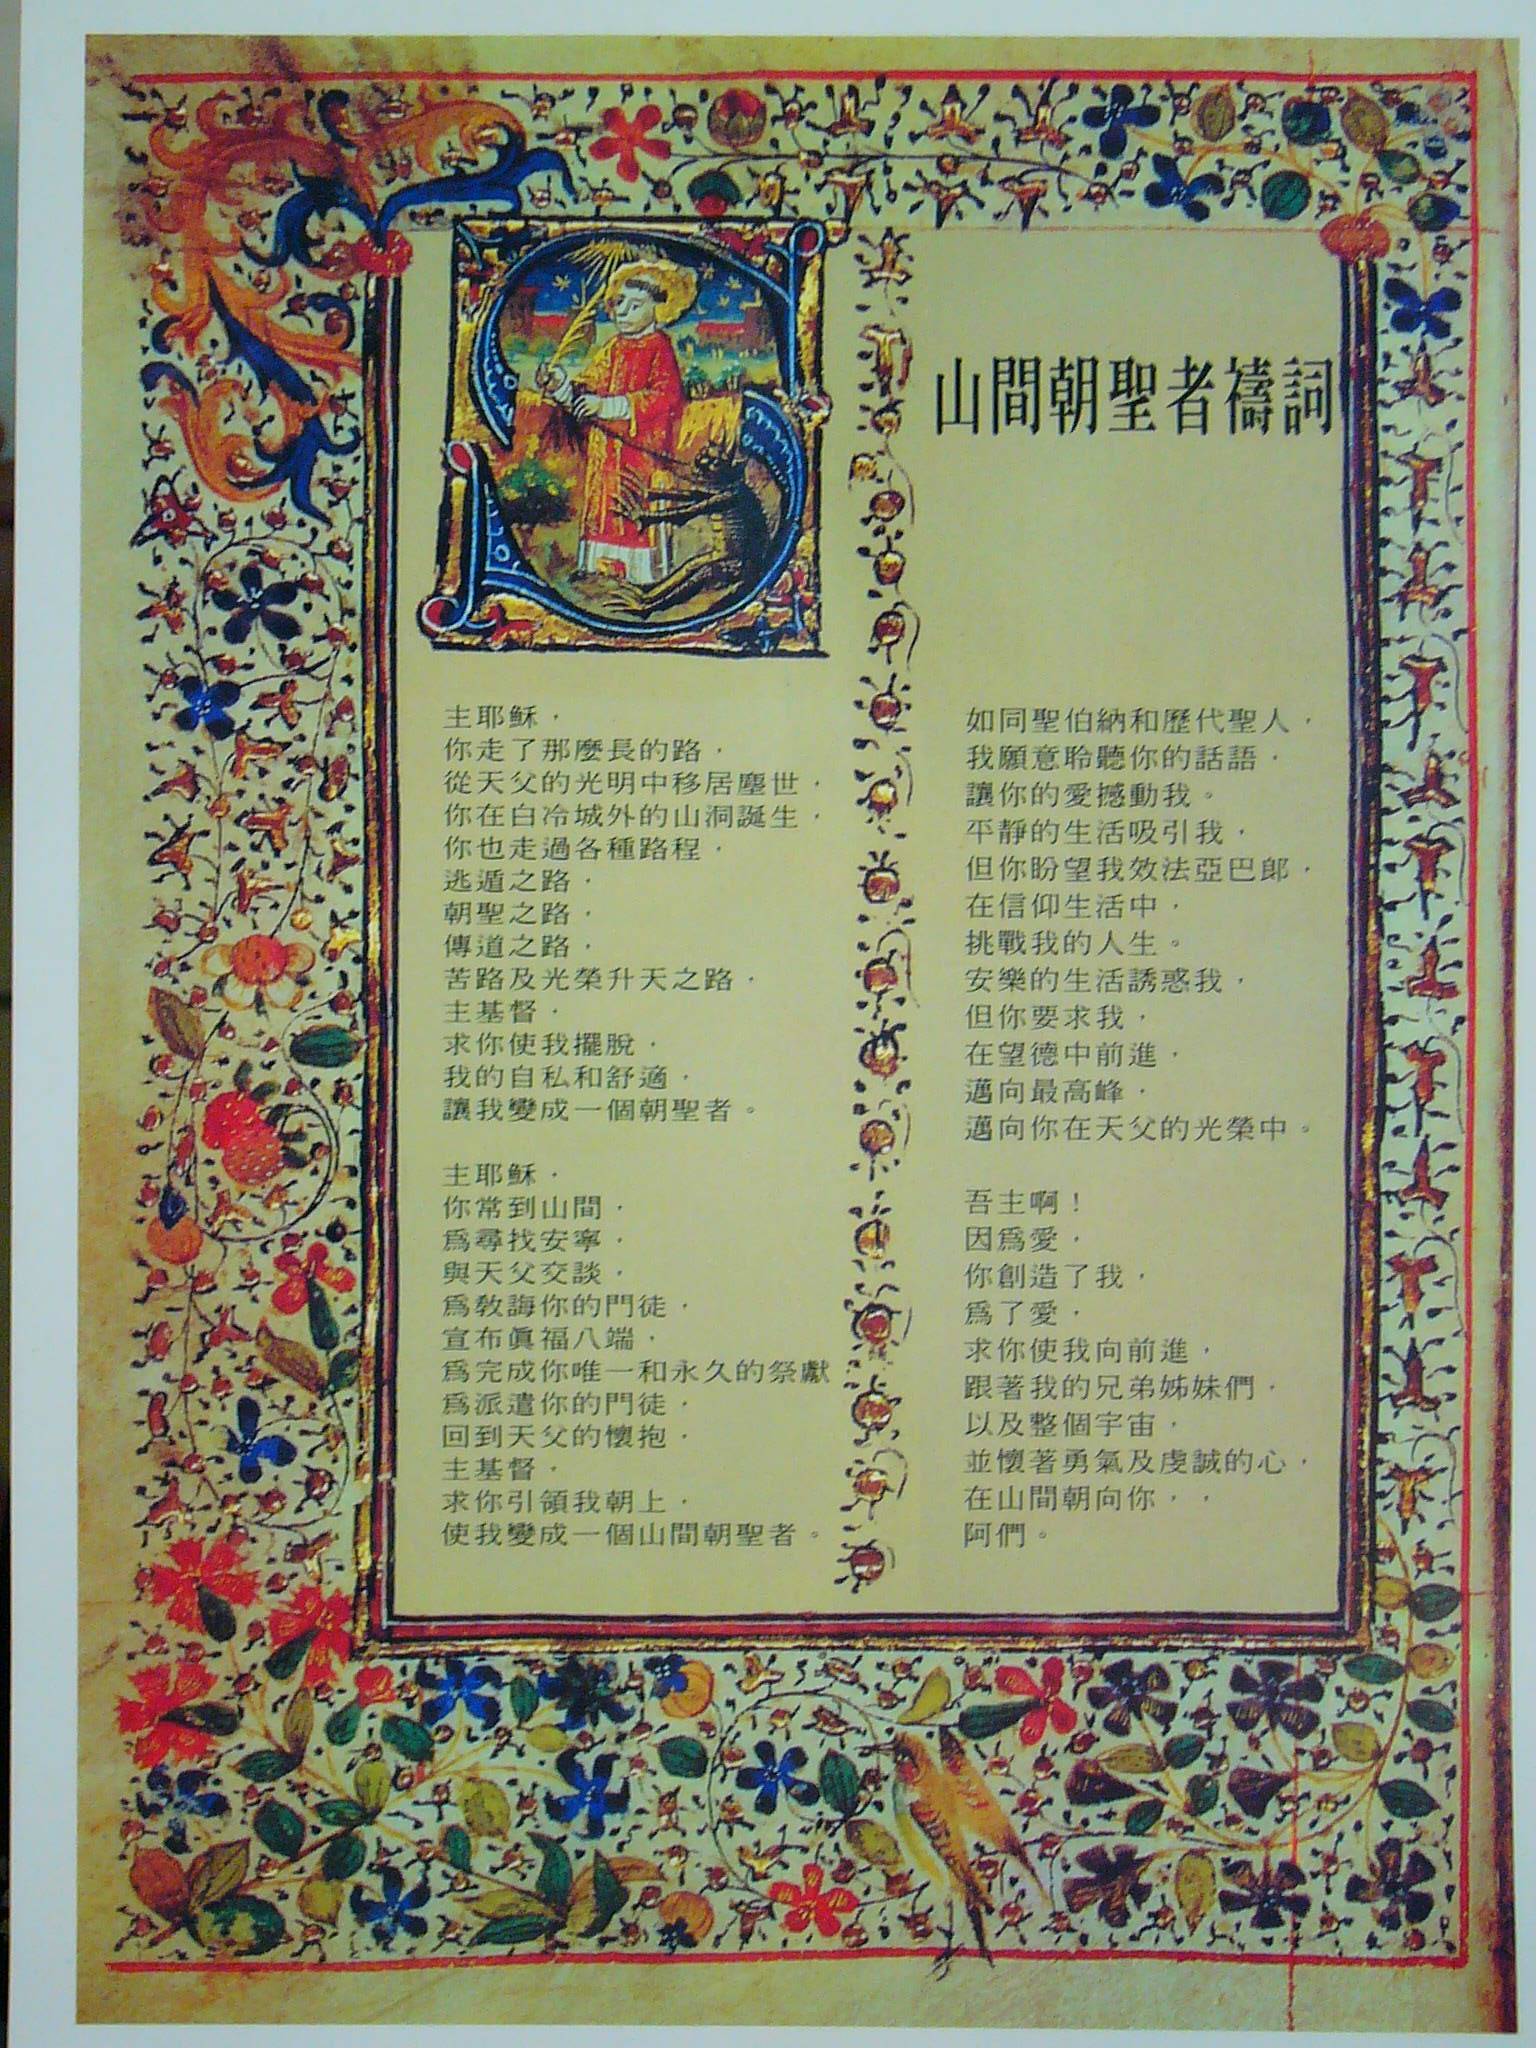 山間朝聖者禱詞
主耶穌，
你走了那麼長的路，
從天父的光明中移居塵世，
你在白冷城外的山洞誕生，
你也走過各種路程，
逃遁之路，
朝聖之路，
傳道之路，
苦路及光榮升天之路，
主基督，
求你使我擺脫，
我的自私和舒適，
讓我變成一個朝聖者。
主耶穌，
你常到山間，
為尋找安寧，
與天父交談，
為教誨你的門徒，
宣布真福八端，
為完成你唯一和永久的祭獻
為派遣你的門徒，
回到天父的懷抱，
主基督，
求你引領我朝上，
使我變成一個山間朝聖者。
如同聖伯納和歷代聖人，
我願意聆聽你的話語，
讓你的愛撼動我。
平靜的生活吸引我，
但你盼望我效法亞巴郎，
在信仰生活中，
挑戰我的人生。
安樂的生活誘惑我，
但你要求我，
在望德中前進，
邁向最高峰，
邁向你在天父的光榮中。
吾主啊！
因為愛，
你創造了我，
為了愛，
求你使我向前進，
跟著我的兄弟姊妹們，
以及整個宇宙，
並懷著勇氣及虔誠的心，
在山間朝向你，，
阿們。